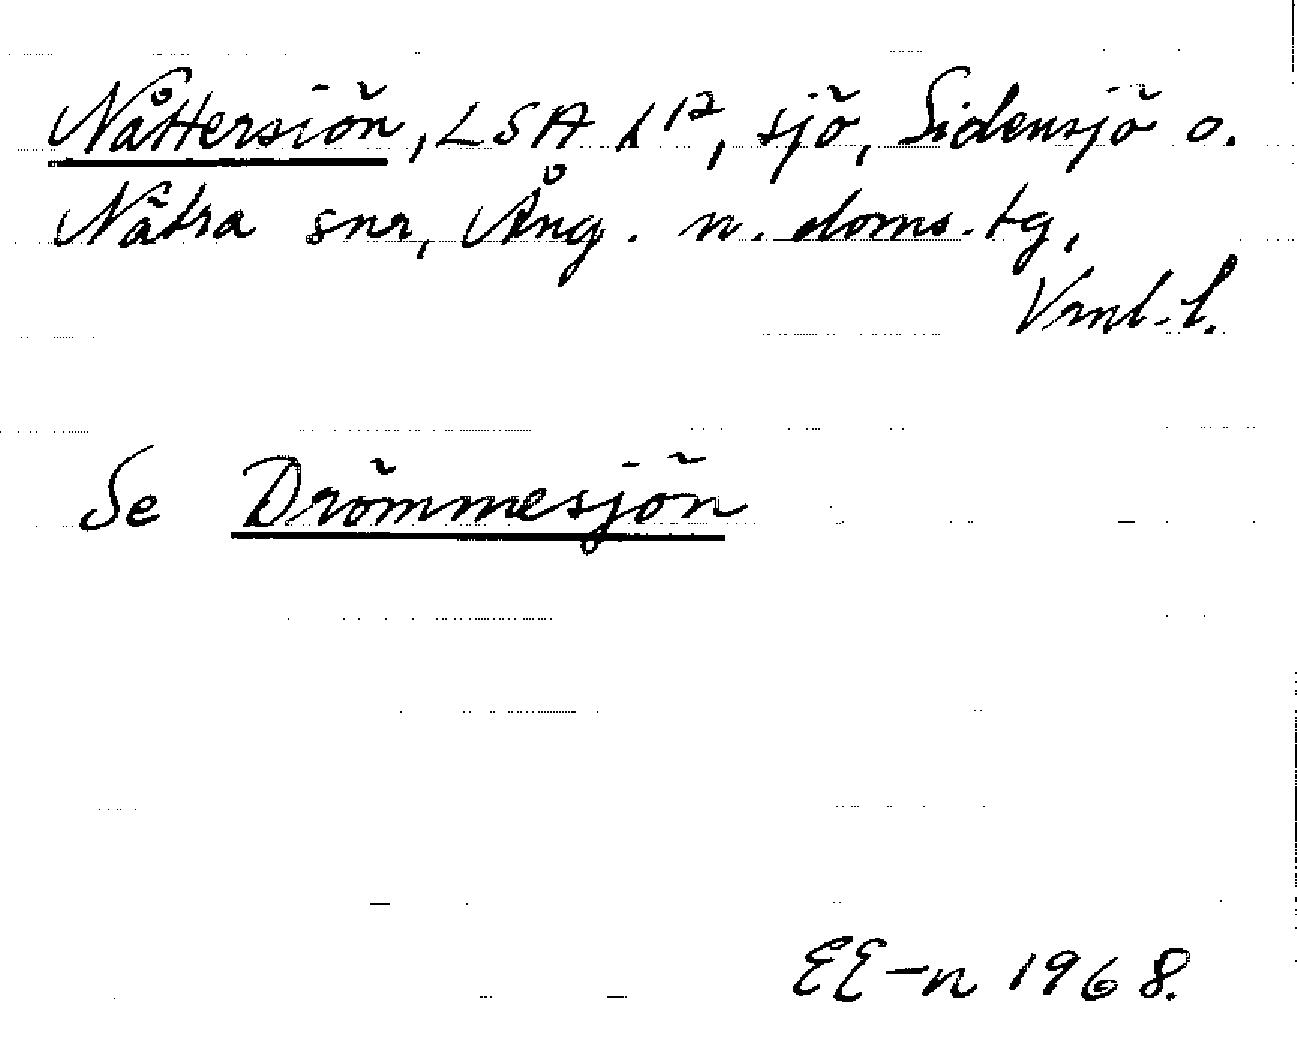 Nåttersiön, LSA h 12, sjö, Sidensjö o.
Nätra snr, Ång. n. doms.-tg,
Vrnl.-l.
Se Drömmesjön
EE-n 1968.